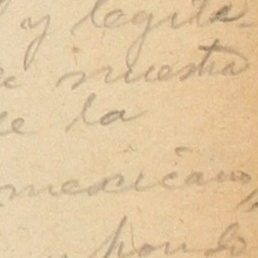 y legita-
nuestra
de la
mexicano,